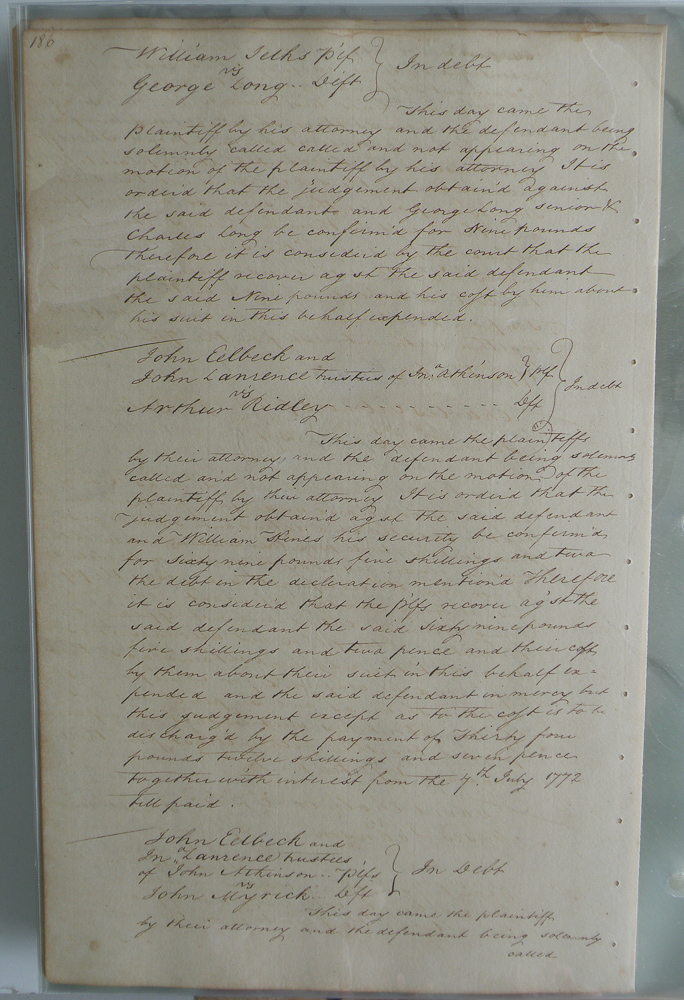 186
William Selks Plf
vs
George Long .. Deft
In debt
This day came the
plaintiff by his attorney and the defendant being
solemnly called called and not appearing on the
motion of the plaintiff by his attorney It is
orderd that the judgement obtain'd against
the said defendant and George Long senior &
Charles Long be confirm'd for Nine pounds
Therefore it is considerd by the court that the
plaintiff recover ag st the said defendant
the said Nine pounds and his cost by him about
his suit in this behalf expended.
John Eelbeck and
John Lanrence trustees of Jno. Atkinson Plf
vs
Arthur Ridley - - - - - - - - - - Dft
In debt
This day came the plaintiffs
by their attorney and the defendant being solemnly
called and not appearing on the motion of the
plaintiff by their attorney It is orderd that the
judgement obtain'd agst the said defendant
and William Hines his security be confirm'd
for Sixty nine pounds five shillings and two
the debt in the decleration mention'd Therefore
it is considerd that the plfs recover ag'st the
said defendant the said sixty nine pounds
five shillings and two pence and their cost
by them about their suit in this behalf ex=
pended and the said defendant in mercy but
this judgement except as to the cost is to be
discharg'd by the payment of Thirty four
pounds twelve shillings and seven pence
together with interest from the 7th July 1772
till paid.
John Eelbeck and
Jno Lanrence trustees
of John Atkinson .. Plfs
vs
John Myrick .. Dft
In Debt
This day came the plaintiff
by their attorney and the defendant being solemnly
called